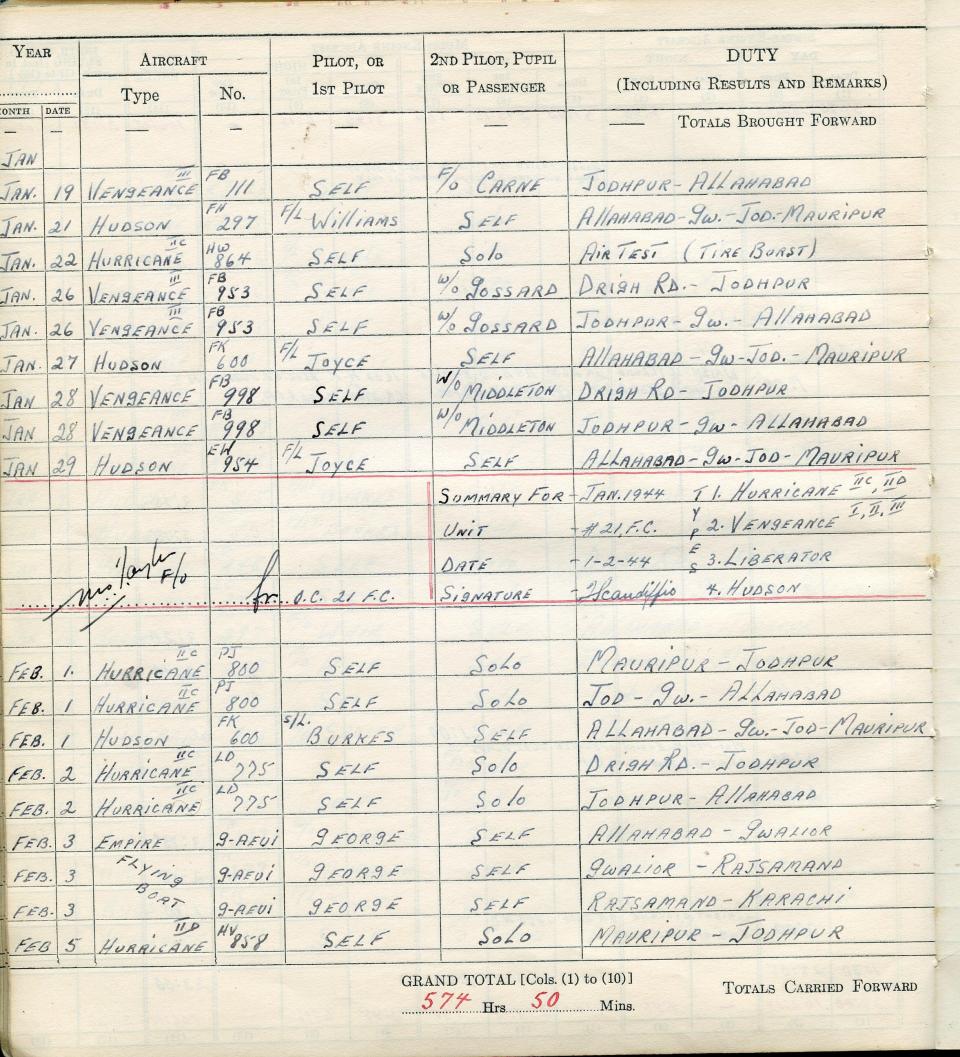 YEAR AIRCRAFT PILOT, OR 1ST PILOT 2ND PILOT, PUPIL OR PASSENGER DUTY (INCLUDING RESULTS AND REMARKS)
MONTH DATE Type No.
— — — — — — TOTALS BROUGHT FORWARD
JAN
JAN. 19 VENGEANCE III FB 111 SELF F/O CARNE JODHPUR - ALLAHABAD
JAN. 21 HUDSON FH 297 F/L WILLIAMS SELF ALLAHABAD - GW. - JOD. - MAURIPUR
JAN. 22 HURRICANE IIC HW 864 SELF SOLO AIR TEST (TIRE BURST)
JAN. 26 VENGEANCE III FB 953 SELF W/O GOSSARD DRIGH RD. - JODHPUR
JAN. 26 VENGEANCE III FB 953 SELF W/O GOSSARD JODHPUR - GW. - ALLAHABAD
JAN. 27 HUDSON FK 600 F/L JOYCE SELF ALLAHABAD - GW - JOD. - MAURIPUR
JAN 28 VENGEANCE FB 998 SELF W/O MIDDLETON DRIGH RD - JODHPUR
JAN 28 VENGEANCE FB 998 SELF W/O MIDDLETON JODHPUR - GW - ALLAHABAD
JAN 29 HUDSON EW 954 F/L JOYCE SELF ALLAHABAD - GW - JOD - MAURIPUR
SUMMARY FOR - JAN. 1944 TYPES 1. HURRICANE IIC, IID
UNIT - #21, F.C. 2. VENGEANCE I, II, III
DATE - 1-2-44 3. LIBERATOR
F/O for O.C. 21 F.C. SIGNATURE - Scandiffio 4. HUDSON
FEB. 1. HURRICANE IIC PJ 800 SELF SOLO MAURIPUR - JODHPUR
FEB. 1 HURRICANE IIC PJ 800 SELF SOLO JOD - GW. - ALLAHABAD
FEB. 1 HUDSON FK 600 S/L. BURKES SELF ALLAHABAD - GW. - JOD - MAURIPUR
FEB. 2 HURRICANE IIC LD 775 SELF SOLO DRIGH RD. - JODHPUR
FEB. 2 HURRICANE IIC LD 775 SELF SOLO JODHPUR - ALLAHABAD
FEB. 3 EMPIRE G-AEUI GEORGE SELF ALLAHABAD - GWALIOR
FEB. 3 FLYING G-AEUI GEORGE SELF GWALIOR - RAJSAMAND
FEB. 3 BOAT G-AEUI GEORGE SELF RAJSAMAND - KARACHI
FEB 5 HURRICANE IID HV 858 SELF SOLO MAURIPUR - JODHPUR
GRAND TOTAL [Cols. (1) to (10)] TOTALS CARRIED FORWARD
574 Hrs 50 Mins.